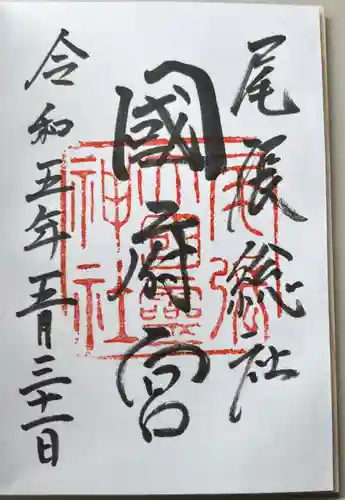 尾張総社
國府宮
令和五年五月三十一日
尾張
大國靈
神社